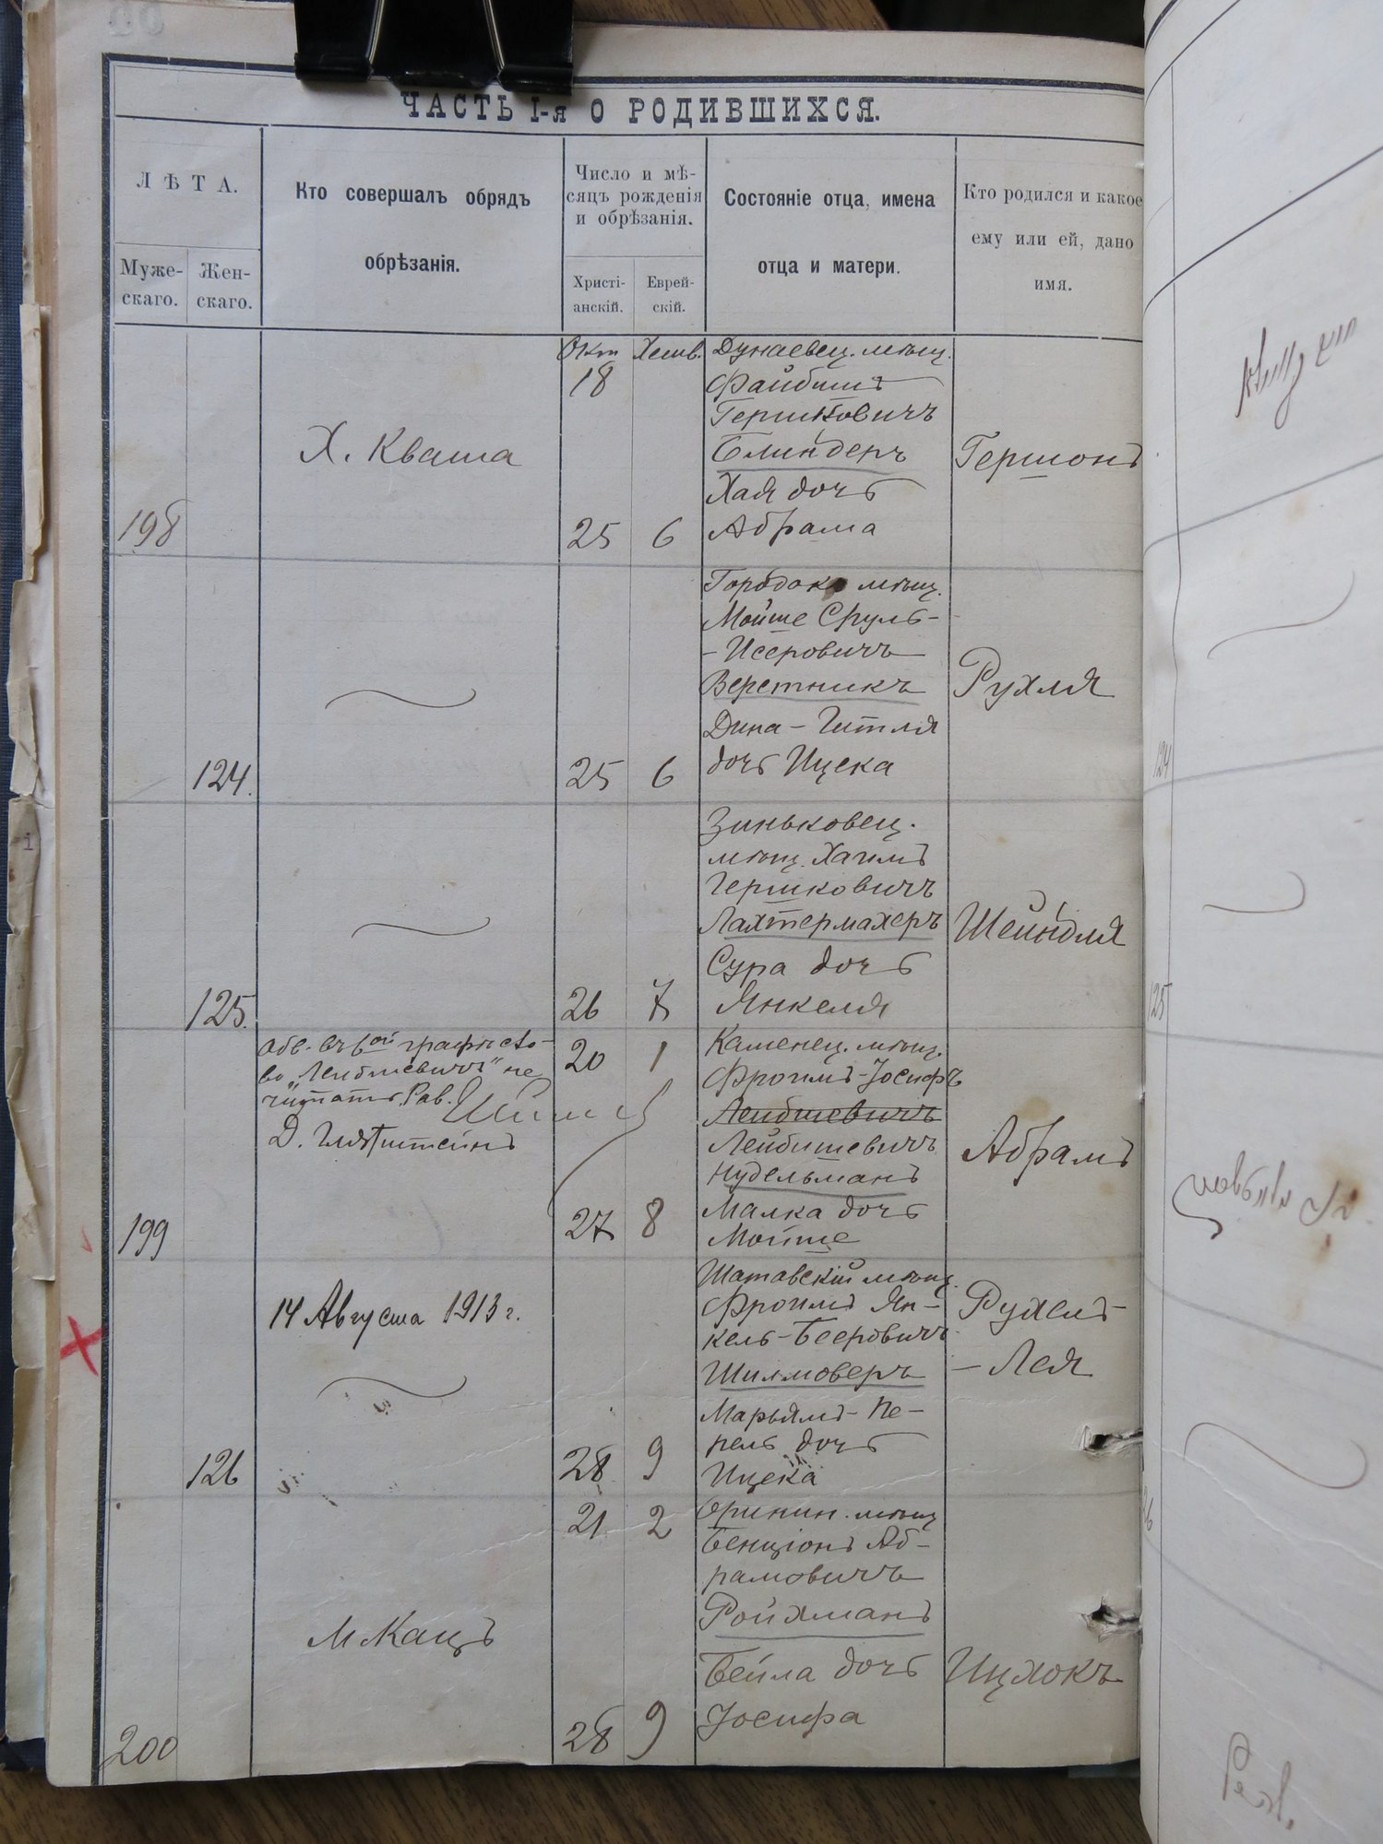 ЧАСТЬ I-я О РОДИВШИХСЯ.
ЛѢТА.
Муже-
скаго.
Жен-
скаго.
Кто совершалъ обрядъ
обрѣзанія.
Число и мѣ-
сяцъ рожденія
и обрѣзанія.
Христі-
анскій.
Еврей-
скій.
Состояніе отца, имена
отца и матери.
Кто родился и какое
ему или ей, дано
имя.
198
Х. Кваша
Окт Хешв.
18
25 6
Дунаевец. мѣщ.
Файбишъ
Гершковичъ
Блиндеръ
Хая дочь
Абрама
Гершонъ
124.
25 6
Городок мѣщ.
Мойше Сруль-
-Исеровичъ
Веретникъ
Дина-Гитля
дочь Ицека
Рухля
125.
26 7
Зиньковец.
мѣщ. Хаимъ
Гершковичъ
Лахтермахеръ
Сура дочь
Янкеля
Шейндля
199
въ ой графѣ сло-
во „Лейбшевичъ" не
читать. Рав.
Д.
20 1
27 8
Каменец. мѣщ.
Фроимъ-Іосифъ
Лейбшевичъ
Лейбишевичъ
Нудельманъ
Малка дочь
Мойше
Абрамъ
126
14 Августа 1913 г.
28 9
Шатавскій мѣщ.
Фроимъ Ян-
кель-Бееровичъ
Шилмоверъ
Марьямъ-Пе-
рель дочь
Ицека
Рухель-
-Лея
200
М Кацъ
21 2
28 9
Оринин. мѣщ
Бенціонъ Аб-
рамовичъ
Ройхманъ
Бейла дочь
Іосифа
Ицхокъ
124
125